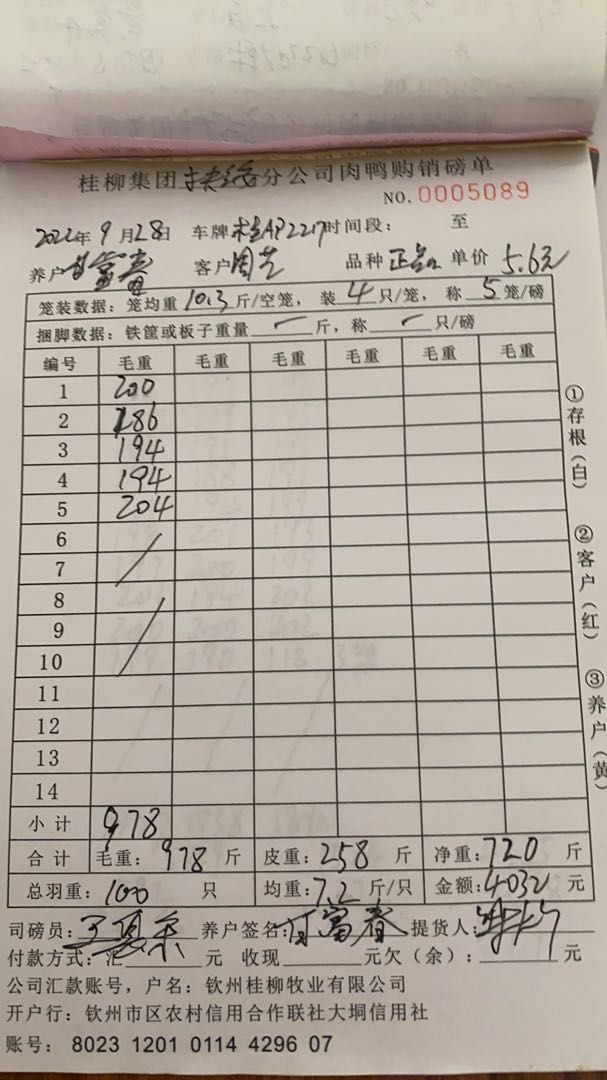 桂柳集团 分公司肉鸭购销磅单
NO.0005089
2022年9月28日 车牌桂AP2217时间段： 至
养户甘富春 客户周芝 品种 正品 单价 5.6元
笼装数据：笼均重10.3斤/空笼，装4只/笼，称5笼/磅
捆脚数据：铁筐或板子重量 斤，称 只/磅
编号 毛重 毛重 毛重 毛重 毛重 毛重
1 200
2 186
3 194
4 194
5 204
6
7
8
9
10
11
12
13
14
小计 978
合计 毛重：978斤 皮重：258斤 净重：720斤
总羽重：100只 均重：7.2斤/只 金额：4032元
司磅员： 养户签名：甘富春 提货人：
付款方式：汇 元 收现 元欠（余）： 元
公司汇款账号，户名：钦州桂柳牧业有限公司
开户行：钦州市区农村信用合作联社大垌信用社
账号： 8023 1201 0114 4296 07
①存根（白）
②客户（红）
③养户（黄）